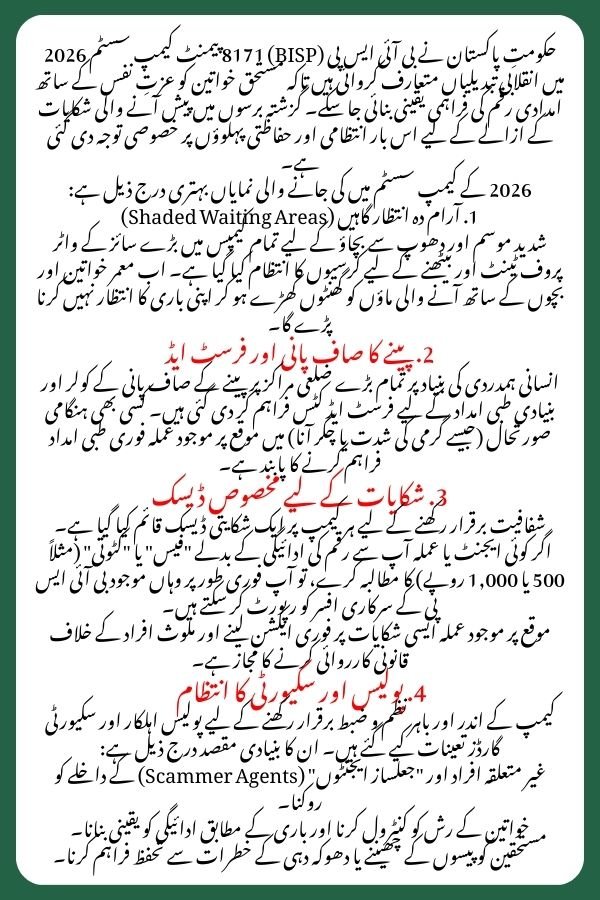 حکومتِ پاکستان نے بی آئی ایس پی (BISP) 8171 پیمنٹ کیمپ سسٹم 2026
میں انقلابی تبدیلیاں متعارف کروائی ہیں تاکہ مستحق خواتین کو عزتِ نفس کے ساتھ
امدادی رقم کی فراہمی یقینی بنائی جا سکے۔ گزشتہ برسوں میں پیش آنے والی شکایات
کے ازالے کے لیے اس بار انتظامی اور حفاظتی پہلوؤں پر خصوصی توجہ دی گئی
ہے۔
2026 کے کیمپ سسٹم میں کی جانے والی نمایاں بہتری درج ذیل ہے:
1. آرام دہ انتظار گاہیں (Shaded Waiting Areas)
شدید موسم اور دھوپ سے بچاؤ کے لیے تمام کیمپس میں بڑے سائز کے واٹر
پروف ٹینٹ اور بیٹھنے کے لیے کرسیوں کا انتظام کیا گیا ہے۔ اب معمر خواتین اور
بچوں کے ساتھ آنے والی ماؤں کو گھنٹوں کھڑے ہو کر اپنی باری کا انتظار نہیں کرنا
پڑے گا۔
2. پینے کا صاف پانی اور فرسٹ ایڈ
انسانی ہمدردی کی بنیاد پر تمام بڑے ضلعی مراکز پر پینے کے صاف پانی کے کولر اور
بنیادی طبی امداد کے لیے فرسٹ ایڈ کٹس فراہم کر دی گئی ہیں۔ کسی بھی ہنگامی
صورتحال (جیسے گرمی کی شدت یا چکر آنا) میں موقع پر موجود عملہ فوری طبی امداد
فراہم کرنے کا پابند ہے۔
3. شکایات کے لیے مخصوص ڈیسک
شفافیت برقرار رکھنے کے لیے ہر کیمپ پر ایک شکایتی ڈیسک قائم کیا گیا ہے۔
اگر کوئی ایجنٹ یا عملہ آپ سے رقم کی ادائیگی کے بدلے "فیس" یا "کٹوتی" (مثلاً
500 یا 1,000 روپے) کا مطالبہ کرے، تو آپ فوری طور پر وہاں موجود بی آئی ایس
پی کے سرکاری افسر کو رپورٹ کر سکتے ہیں۔
موقع پر موجود عملہ ایسی شکایات پر فوری ایکشن لینے اور ملوث افراد کے خلاف
قانونی کارروائی کرنے کا مجاز ہے۔
4. پولیس اور سکیورٹی کا انتظام
کیمپ کے اندر اور باہر نظم و ضبط برقرار رکھنے کے لیے پولیس اہلکار اور سکیورٹی
گارڈز تعینات کیے گئے ہیں۔ ان کا بنیادی مقصد درج ذیل ہے:
غیر متعلقہ افراد اور "جعلساز ایجنٹوں" (Scammer Agents) کے داخلے کو
روکنا۔
خواتین کے رش کو کنٹرول کرنا اور باری کے مطابق ادائیگی کو یقینی بنانا۔
مستحقین کو پیسوں کے چھیننے یا دھوکہ دہی کے خطرات سے تحفظ فراہم کرنا۔